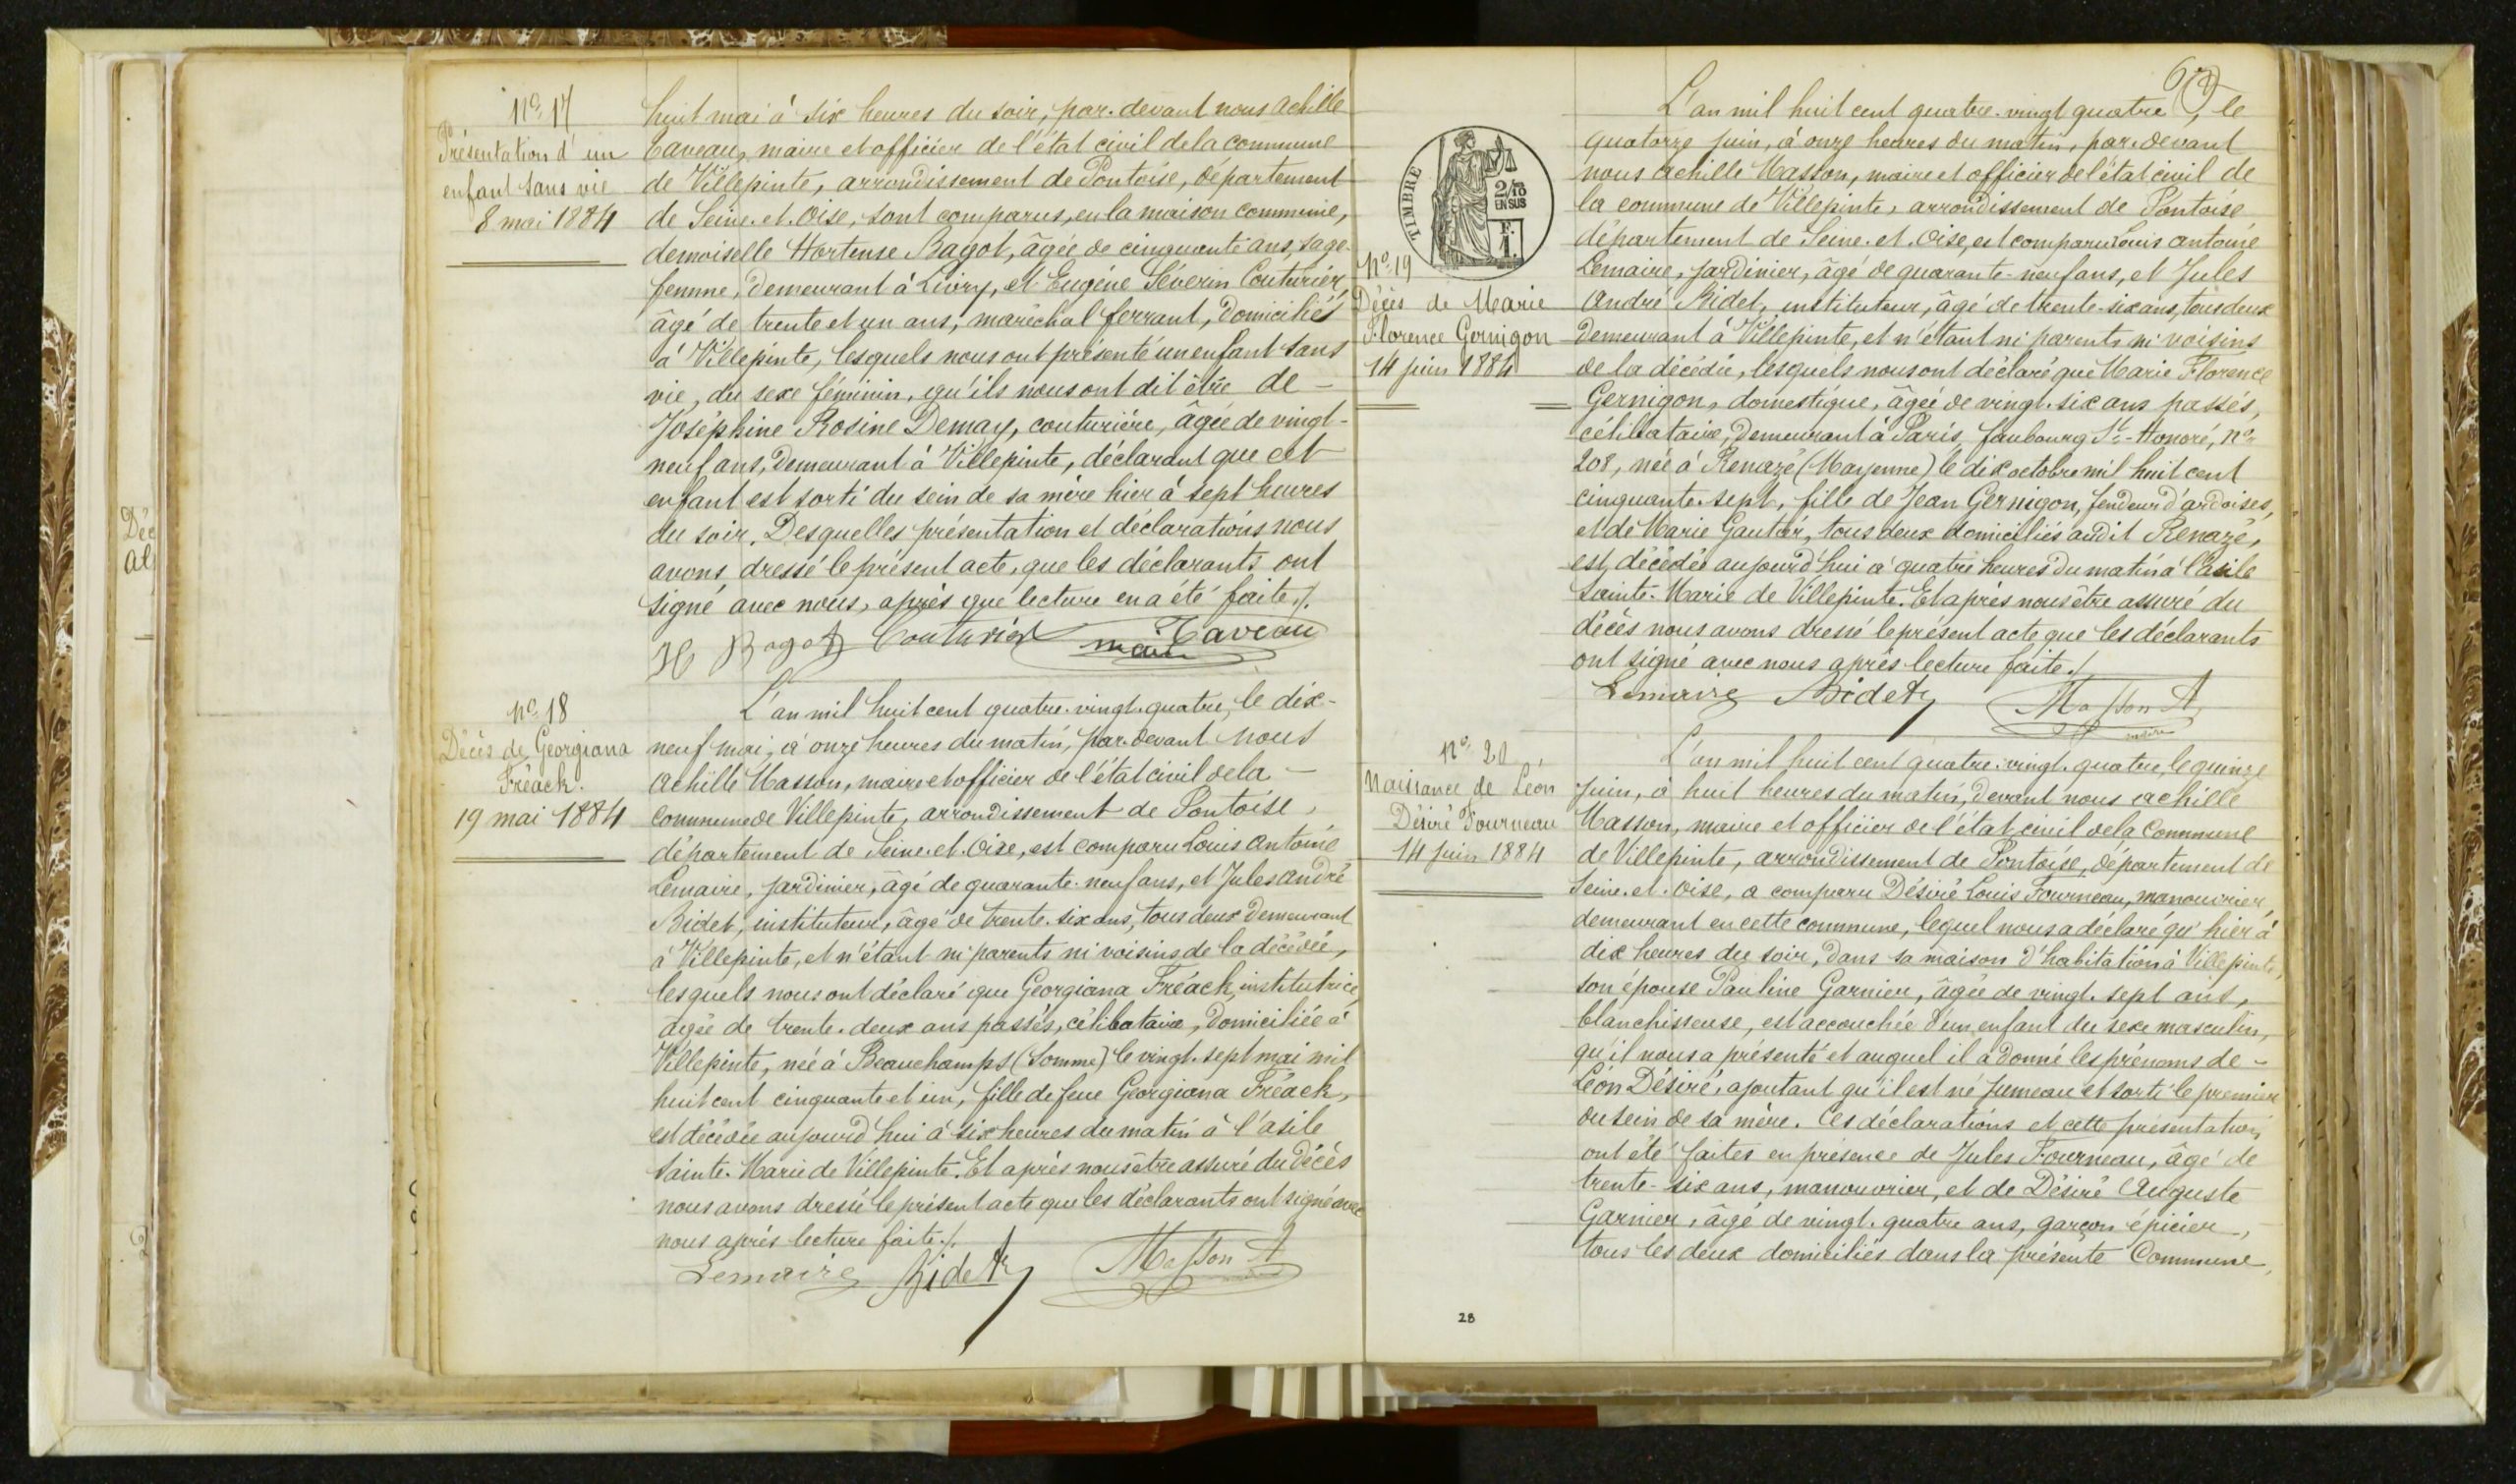 nº 17
Présentation d'un
enfant sans vie
8 mai 1884
huit mai à six heures du soir, par-devant nous Achille
Taveau, maire et officier de l'état civil de la commune
de Villepinte, arrondissement de Pontoise, département
de Seine-et-Oise, sont comparus, en la maison commune,
demoiselle Hortense Bagot, âgée de cinquante ans, sage-
femme, demeurant à Livry, et Eugène Séverin Couturier,
âgé de trente et un ans, maréchal ferrant, domiciliés
à Villepinte, lesquels nous ont présenté un enfant sans
vie, du sexe féminin, qu'ils nous ont dit être de —
Joséphine Rosine Demay, couturière, âgée de vingt-
neuf ans, demeurant à Villepinte, déclarant que cet
enfant est sorti du sein de sa mère hier à sept heures
du soir. Desquelles présentation et déclarations nous
avons dressé le présent acte, que les déclarants ont
signé avec nous, après que lecture en a été faite./.
H Bagot Couturier Taveau
maire
nº 18
Décès de Georgiana
Fréack.
19 mai 1884
L'an mil huit cent quatre-vingt-quatre, le dix-
neuf mai, à onze heures du matin, par-devant nous
Achille Masson, maire et officier de l'état civil de la —
commune de Villepinte, arrondissement de Pontoise,
département de Seine-et-Oise, est comparu Louis Antoine
Lemaire, jardinier, âgé de quarante-neuf ans, et Jules André
Bidet, instituteur, âgé de trente-six ans, tous deux demeurant
à Villepinte, et n'étant ni parents ni voisins de la décédée,
lesquels nous ont déclaré que Georgiana Fréack, institutrice
âgée de trente-deux ans passés, célibataire, domiciliée à
Villepinte, née à Beauchamps (Somme) le vingt-sept mai mil
huit cent cinquante et un, fille de feue Georgiana Fréack,
est décédée aujourd'hui à six heures du matin à l'asile
Sainte-Marie de Villepinte. Et après nous être assuré du décès
nous avons dressé le présent acte que les déclarants ont signé avec
nous après lecture faite./.
Lemaire Bidet Masson A
TIMBRE
2/10
EN SUS
F.
1.
nº 19
Décès de Marie
Florence Gernigon
14 juin 1884
L'an mil huit cent quatre-vingt quatre, le
quatorze juin, à onze heures du matin, par-devant
nous Achille Masson, maire et officier de l'état civil de
la commune de Villepinte, arrondissement de Pontoise
département de Seine-et-Oise, est comparu Louis Antoine
Lemaire, jardinier, âgé de quarante-neuf ans, et Jules
André Bidet, instituteur, âgé de trente-six ans, tous deux
demeurant à Villepinte, et n'étant ni parents ni voisins
de la décédée, lesquels nous ont déclaré que Marie Florence
Gernigon, domestique, âgée de vingt-six ans passés,
célibataire, demeurant à Paris, faubourg St-Honoré, nº
208, née à Renazé (Mayenne) le dix octobre mil huit cent
cinquante-sept, fille de Jean Gernigon, fendeur d'ardoises,
et de Marie Gautier, tous deux domiciliés audit Renazé,
est décédée aujourd'hui à quatre heures du matin à l'asile
Sainte-Marie de Villepinte. Et après nous être assuré du
décès nous avons dressé le présent acte que les déclarants
ont signé avec nous après lecture faite./.
Lemaire Bidet Masson A
maire
nº 20
Naissance de Léon
Désiré Fourneau
14 juin 1884
L'an mil huit cent quatre-vingt-quatre, le quinze
juin, à huit heures du matin, devant nous Achille
Masson, maire et officier de l'état civil de la commune
de Villepinte, arrondissement de Pontoise, département de
Seine-et-Oise, a comparu Désiré Louis Fourneau, manouvrier,
demeurant en cette commune, lequel nous a déclaré qu'hier à
dix heures du soir, dans sa maison d'habitation à Villepinte,
son épouse Pauline Garnier, âgée de vingt-sept ans,
blanchisseuse, est accouchée d'un enfant du sexe masculin,
qu'il nous a présenté et auquel il a donné les prénoms de —
Léon Désiré, ajoutant qu'il est né jumeau et sorti le premier
du sein de sa mère. Ces déclarations et cette présentation
ont été faites en présence de Jules Fourneau, âgé de
trente-six ans, manouvrier, et de Désiré Auguste
Garnier, âgé de vingt-quatre ans, garçon épicier,
tous les deux domiciliés dans la présente Commune,
28